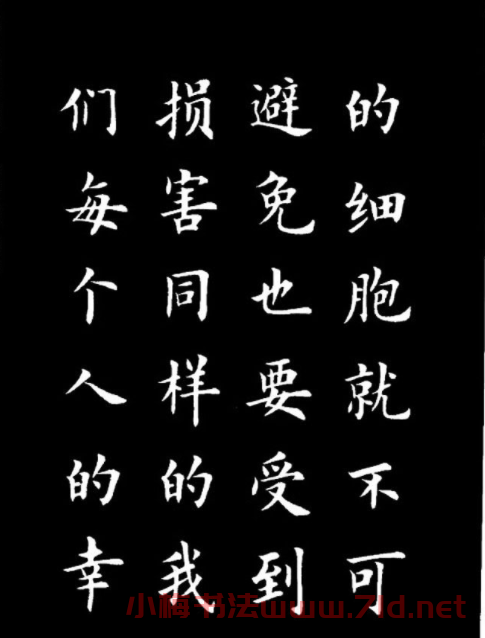 的细胞就不可
避免也要受到
损害同样的我
们每个人的幸
小梅书法www.7ld.net